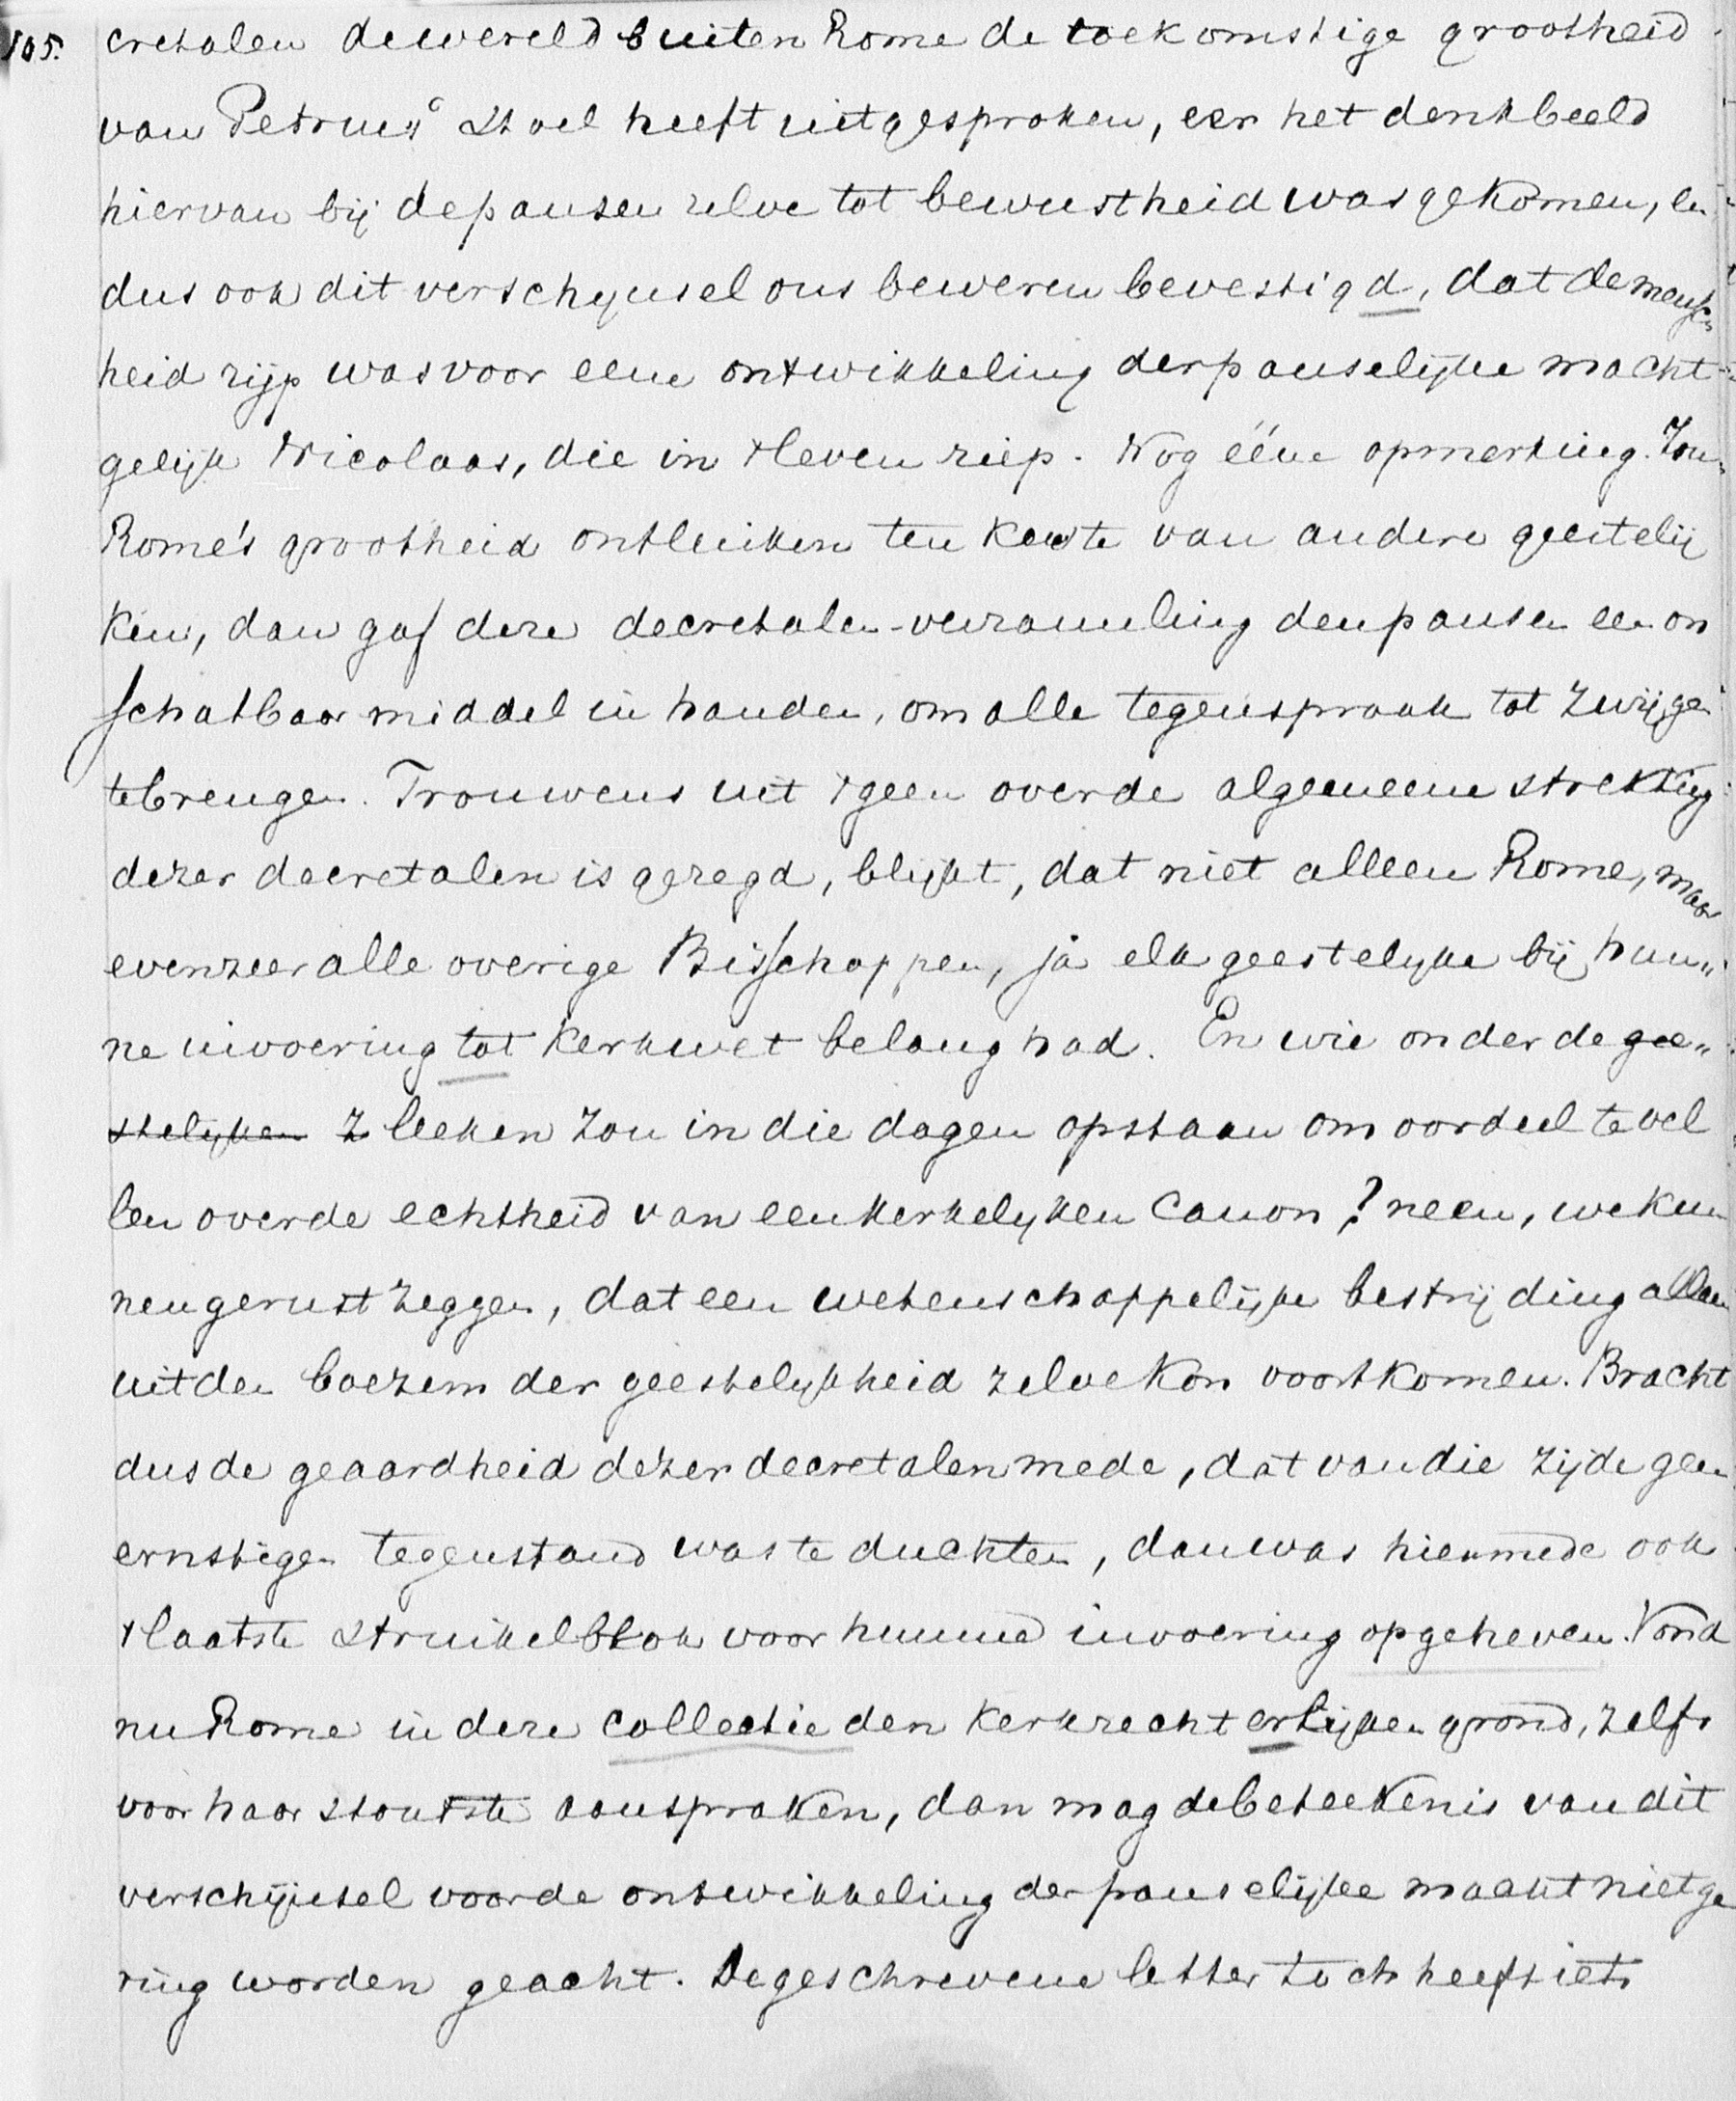 105. cretalen de wereld buiten Rome de toekomstige grootheid
van Petrus' Stoel heeft uitgesproken, eer het denkbeeld
hiervan bij de pausen zelve tot bewustheid was gekomen, en
dus ook dit verschijnsel ons beweren bevestigd, dat de mensch-
heid rijp was voor eene ontwikkeling der pauselijke macht
gelijk Nicolaas, die in 't leven riep. Nog ééne opmerking. Zou
Rome's grootheid ontluiken ten koste van andere geestelij
ken, dan gaf deze decretalen-verzameling den pausen een on
schatbaar middel in handen, om alle tegenspraak tot zwijgen
te brengen. Trouwens uit 't geen over de algemeene strekking
dezer decretalen is gezegd, blijkt, dat niet alleen Rome, maar
evenzeer alle overige Bisschoppen, ja elk geestelijke bij hun„
ne invoering tot kerkwet belang had. En wie onder de gee„
stelijken z leeken zou in die dagen opstaan om oordeel te vel
len over de echtheid van een kerkelijken Canon? neen, we kun
nen gerust zeggen, dat een wetenschappelijke bestrijding alleen
uit den boezem der geestelijkheid zelve kon voortkomen. Bracht
dus de geaardheid dezer decretalen mede, dat van die zijde geen
ernstigen tegenstand was te duchten, dan was hiermede ook
't laatste struikelblok voor hunne invoering opgeheven. Vond
nu Rome in deze collectie den kerkrechterlijken grond, zelfs
voor haar stoutste aanspraken, dan mag de beteekenis van dit
verschijnsel voor de ontwikkeling der pauselijke macht niet ge
ring worden geacht. De geschrevene letter toch heeft iets